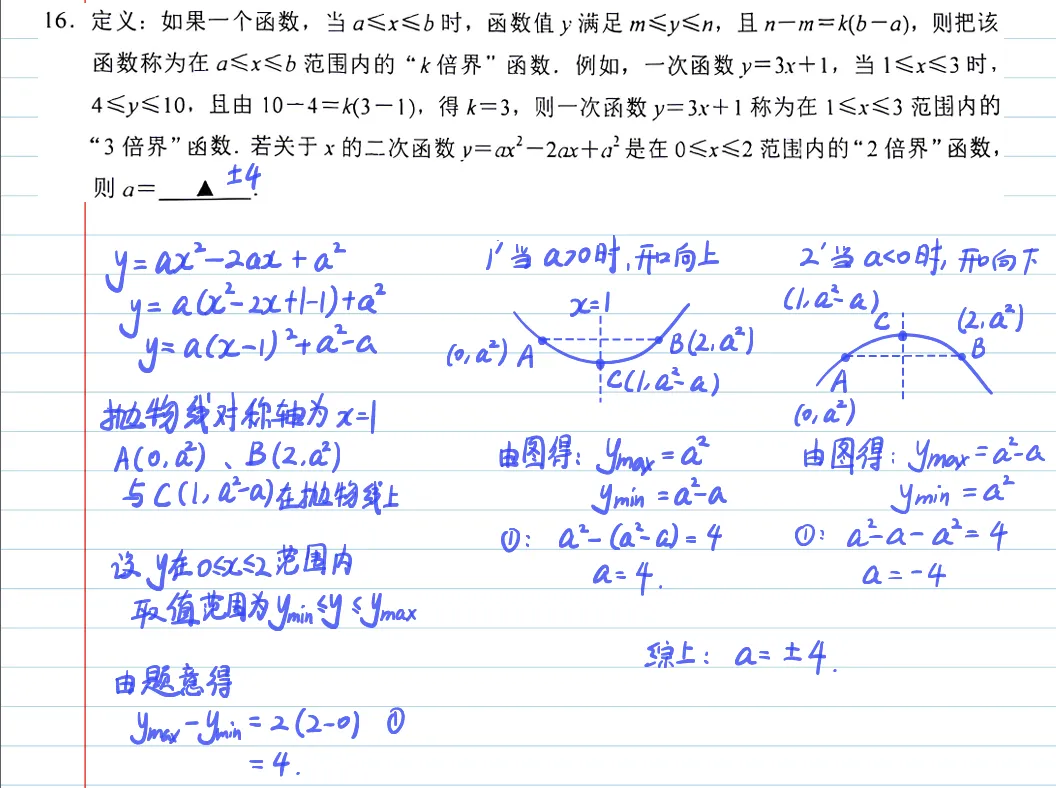 16. 定义：如果一个函数，当 a≤x≤b 时，函数值 y 满足 m≤y≤n，且 n－m＝k(b－a)，则把该
函数称为在 a≤x≤b 范围内的“k 倍界”函数．例如，一次函数 y＝3x＋1，当 1≤x≤3 时，
4≤y≤10，且由 10－4＝k(3－1)，得 k＝3，则一次函数 y＝3x＋1 称为在 1≤x≤3 范围内的
“3 倍界”函数．若关于 x 的二次函数 y＝ax²－2ax＋a² 是在 0≤x≤2 范围内的“2 倍界”函数，
则 a＝ ▲ ±4 ．
y=ax²-2ax+a²
y=a(x²-2x+1-1)+a²
y=a(x-1)²+a²-a
抛物线对称轴为x=1
A(0,a²)、B(2,a²)
与C(1,a²-a)在抛物线上
设y在0≤x≤2范围内
取值范围为ymin≤y≤ymax
由题意得
ymax-ymin=2(2-0) ①
=4.
1' 当a>0时,开口向上
x=1
(0,a²) A
B(2,a²)
C(1,a²-a)
由图得: ymax=a²
ymin=a²-a
①: a²-(a²-a)=4
a=4.
2' 当a<0时,开口向下
(1,a²-a)
C
(2,a²)
B
A
(0,a²)
由图得: ymax=a²-a
ymin=a²
①: a²-a-a²=4
a=-4
综上: a=±4.